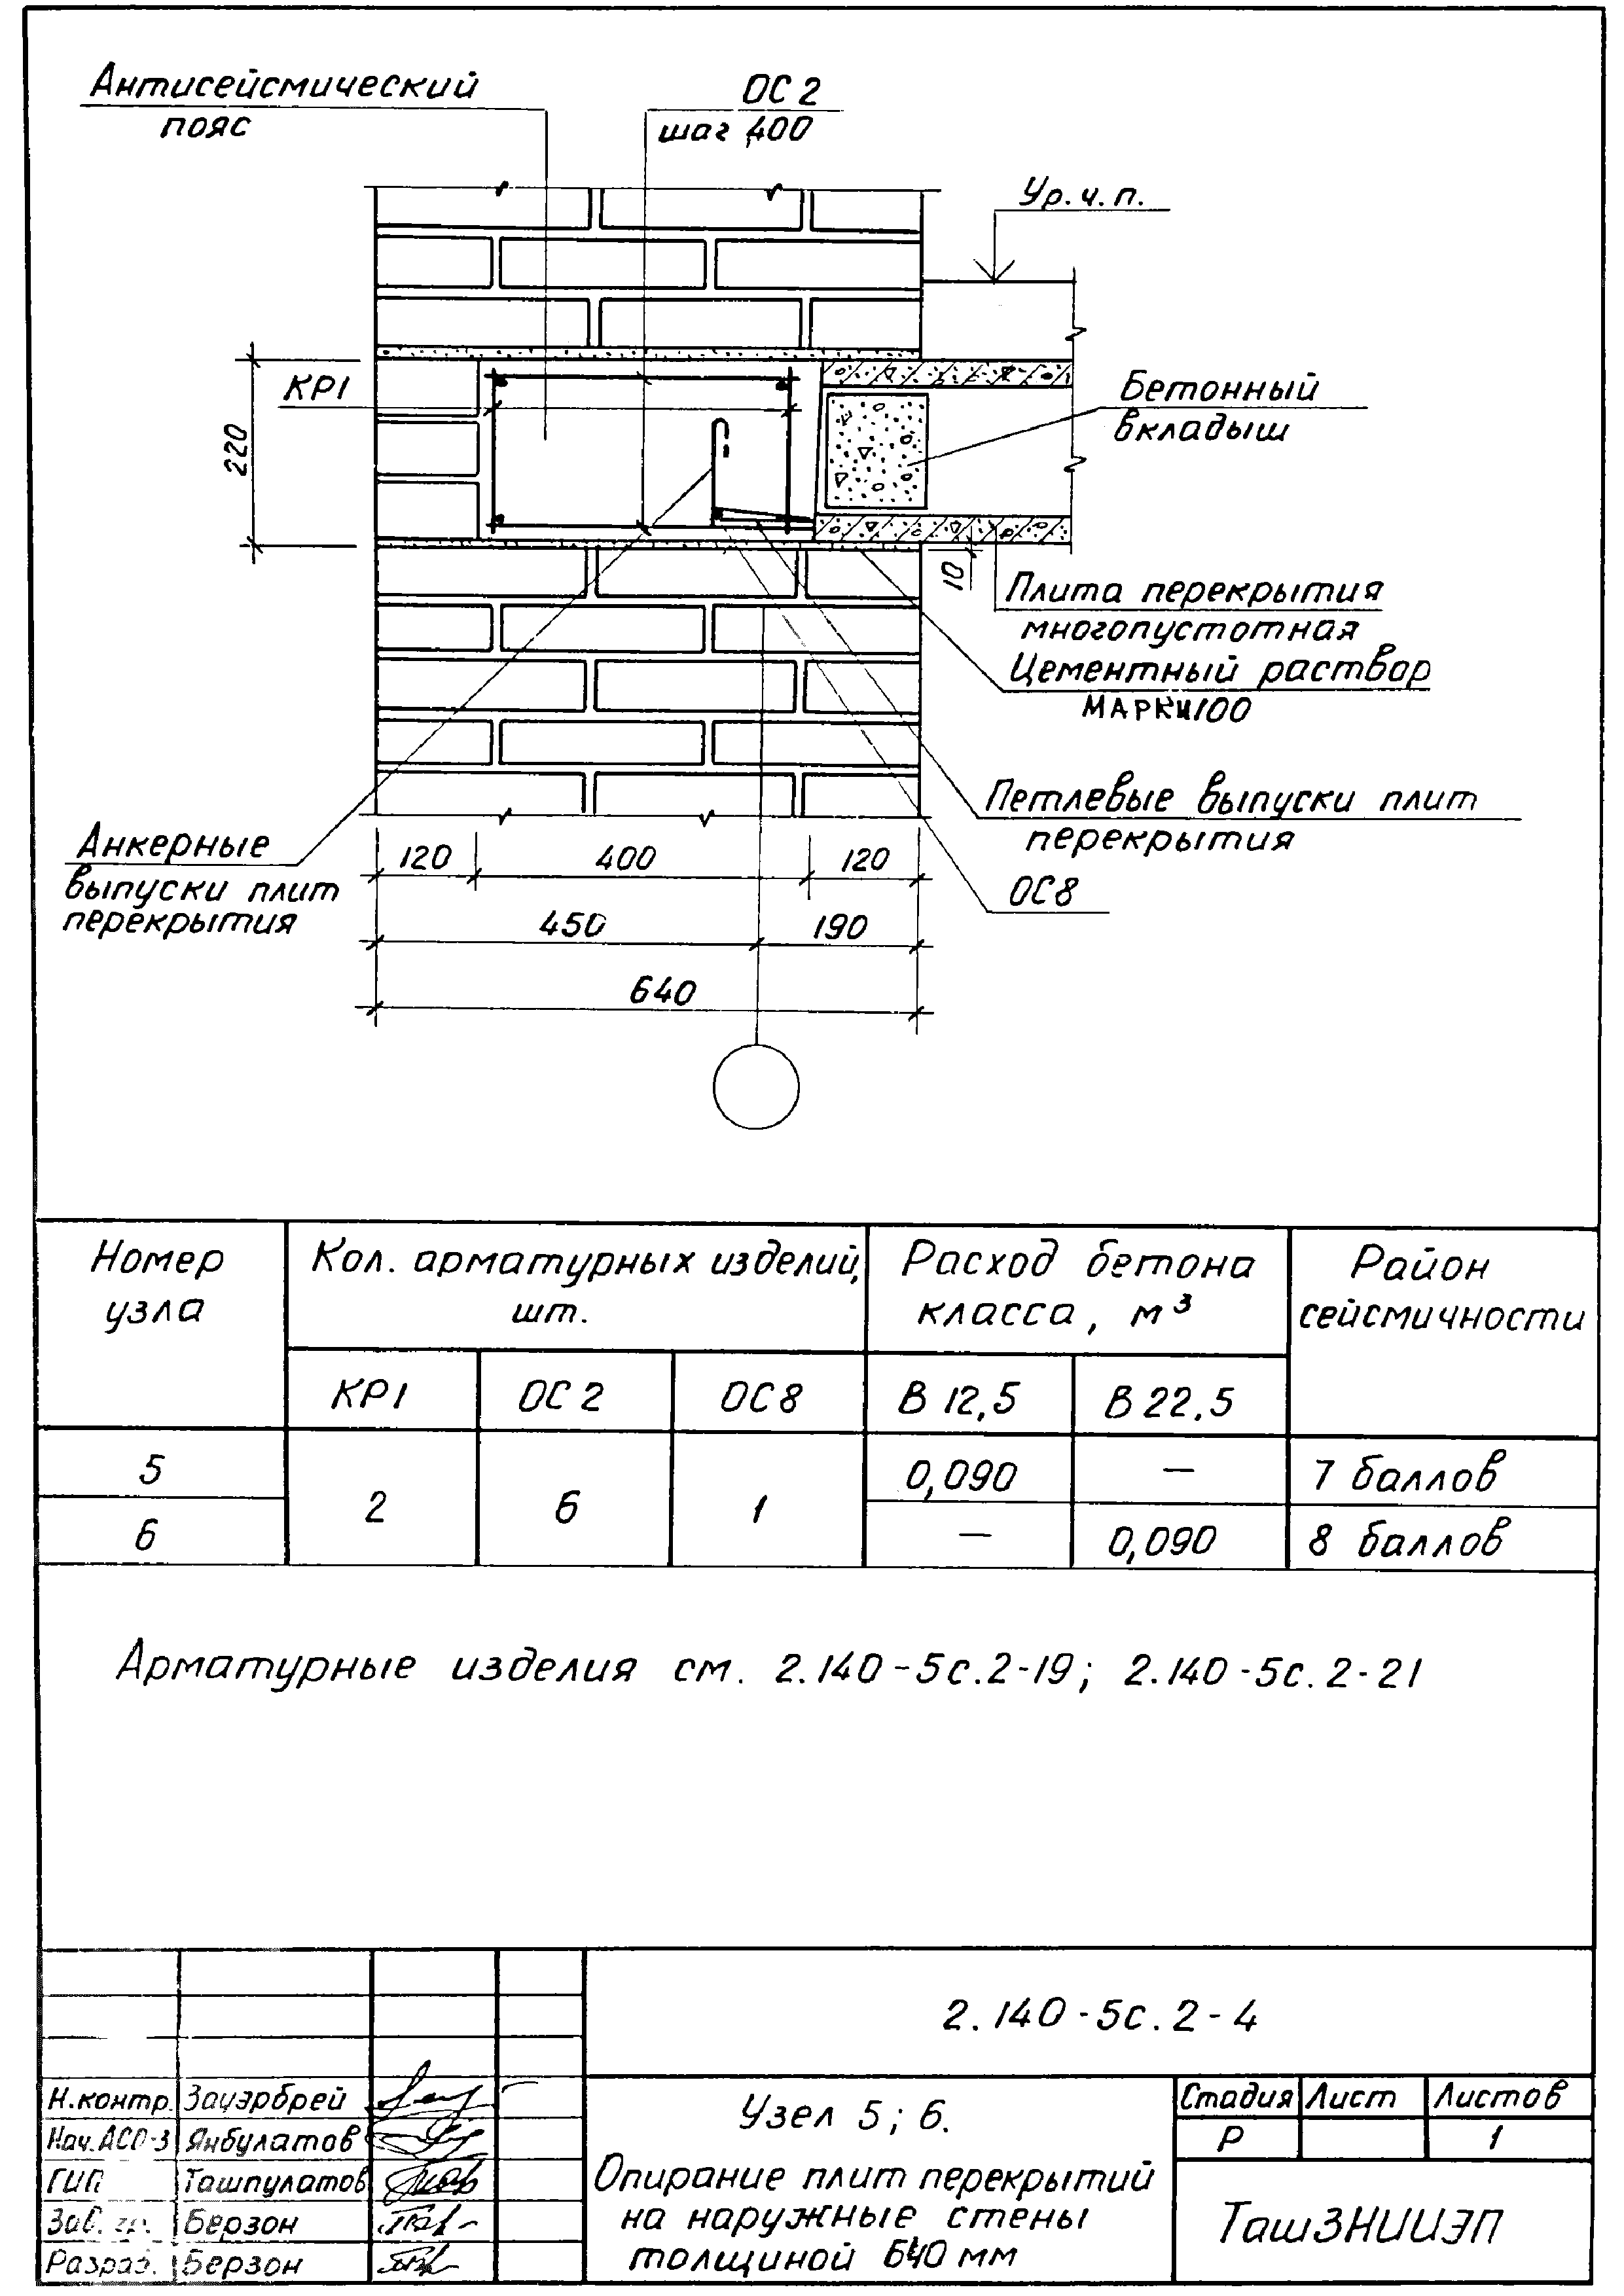 Антисейсмический
пояс
ОС 2
шаг 400
Ур. ч. п.
КР1
220
Бетонный
вкладыш
10
Плита перекрытия
многопустотная
Цементный раствор
МАРКИ 100
Петлевые выпуски плит
перекрытия
ОС8
Анкерные
выпуски плит
перекрытия
120 400 120
450 190
640
Номер
узла
Кол. арматурных изделий,
шт.
Расход бетона
класса, м³
Район
сейсмичности
КР1 ОС 2 ОС8 В 12,5 В 22,5
5 2 6 1 0,090 — 7 баллов
6 — 0,090 8 баллов
Арматурные изделия см. 2.140-5с.2-19; 2.140-5с.2-21
2.140-5с.2-4
Н.контр. Зауэрбрей
Нач.АСО-3 Янбулатов
ГИП Ташпулатов
Зав. гр. Берзон
Разраб. Берзон
Узел 5; 6.
Опирание плит перекрытий
на наружные стены
толщиной 640 мм
Стадия Лист Листов
Р 1
ТашЗНИИЭП